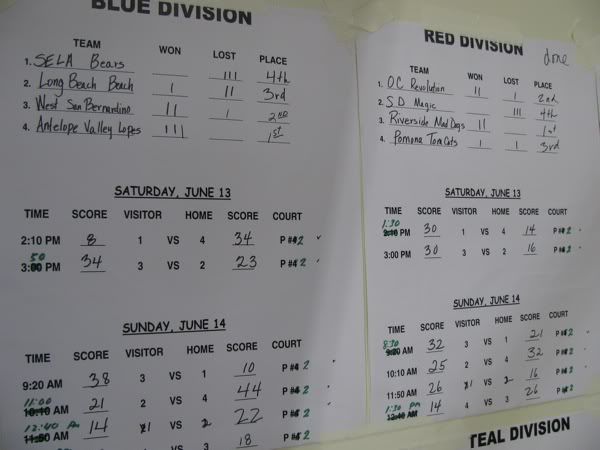 BLUE DIVISION
TEAM WON LOST PLACE
1. SELA Bears III 4th
2. Long Beach Beach I II 3rd
3. West San Bernardino II I 2ND
4. Antelope Valley Lopes III 1ST
SATURDAY, JUNE 13
TIME SCORE VISITOR HOME SCORE COURT
2:10 PM 8 1 VS 4 34 P #2
3:50 PM 34 3 VS 2 23 P #2
SUNDAY, JUNE 14
TIME SCORE VISITOR HOME SCORE COURT
9:20 AM 38 3 VS 1 10 P #2
11:00
10:10 AM 21 2 VS 4 44 P #2
12:40 PM
11:50 AM 14 1 VS 2 22 P #2
VS 3 18 P #2
RED DIVISION done
TEAM WON LOST PLACE
1. OC Revolution II I 2nd
2. SD Magic III 4th
3. Riverside Mad Dogs II 1st
4. Pomona Tom Cats I I 3rd
SATURDAY, JUNE 13
TIME SCORE VISITOR HOME SCORE COURT
1:30
2:10 PM 30 1 VS 4 14 P #2
3:00 PM 30 3 VS 2 16 P #2
SUNDAY, JUNE 14
TIME SCORE VISITOR HOME SCORE COURT
8:30
9:20 AM 32 3 VS 1 21 P #2
10:10 AM 25 2 VS 4 32 P #2
11:50 AM 26 1 VS 2 16 P #2
1:30 PM
12:40 AM 14 4 VS 3 26 P #2
TEAL DIVISION